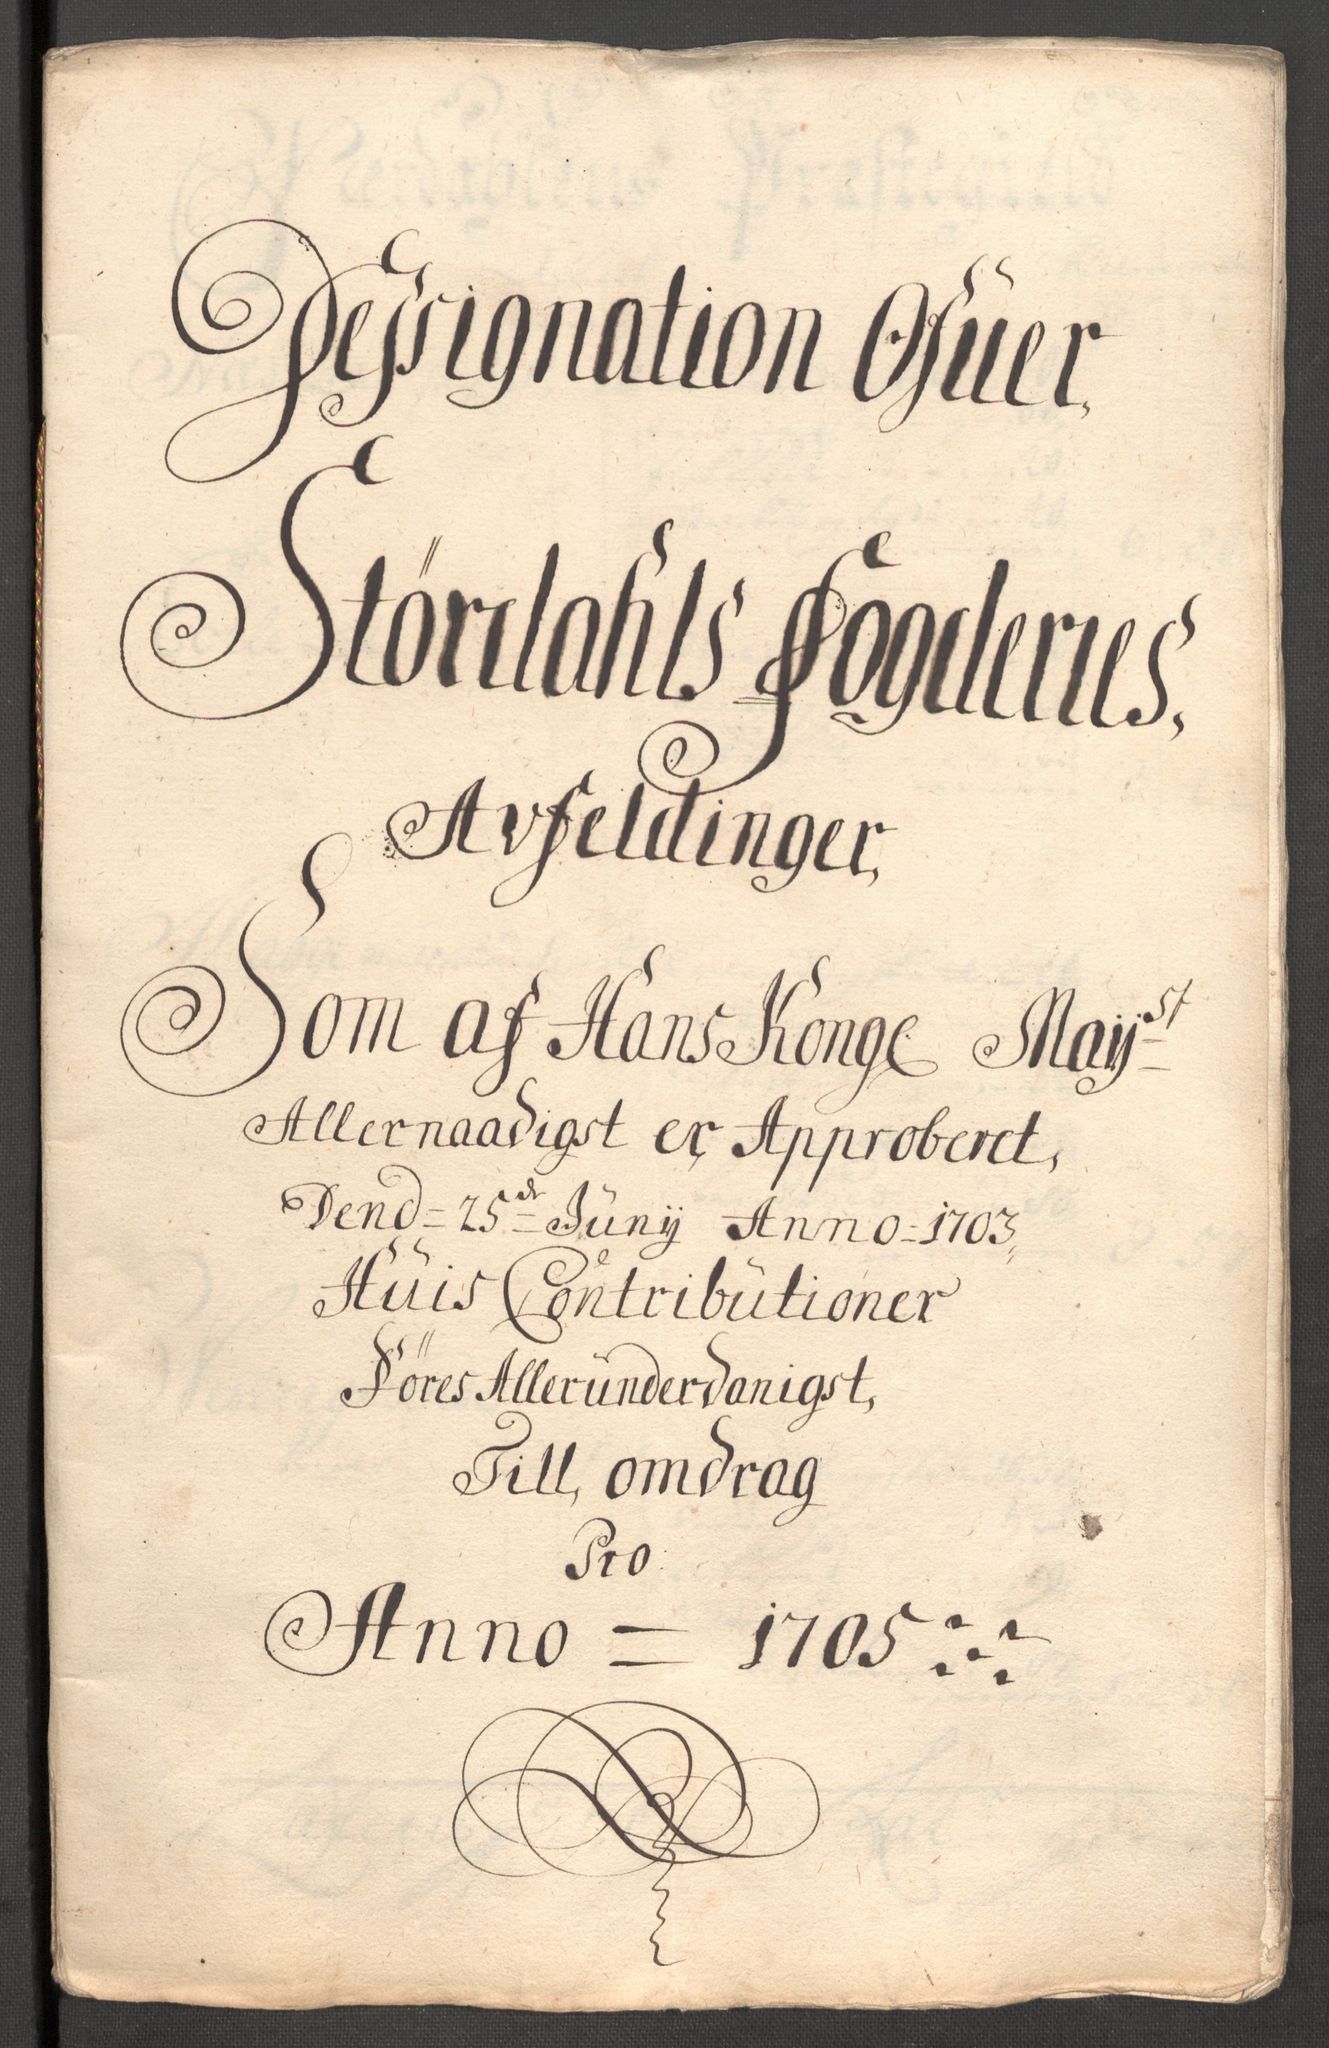 Dessignation Ofuer,
Stördahls Fögderies,
Avfeldinger,
Som af Hans Konge Mayst
Allernaadigst er Approberet,
Dend = 25de Junij Anno = 1703,
Huis Contributioner
Föres Allerunderdanigst,
Till, omdrag
Pro
Anno = 1705